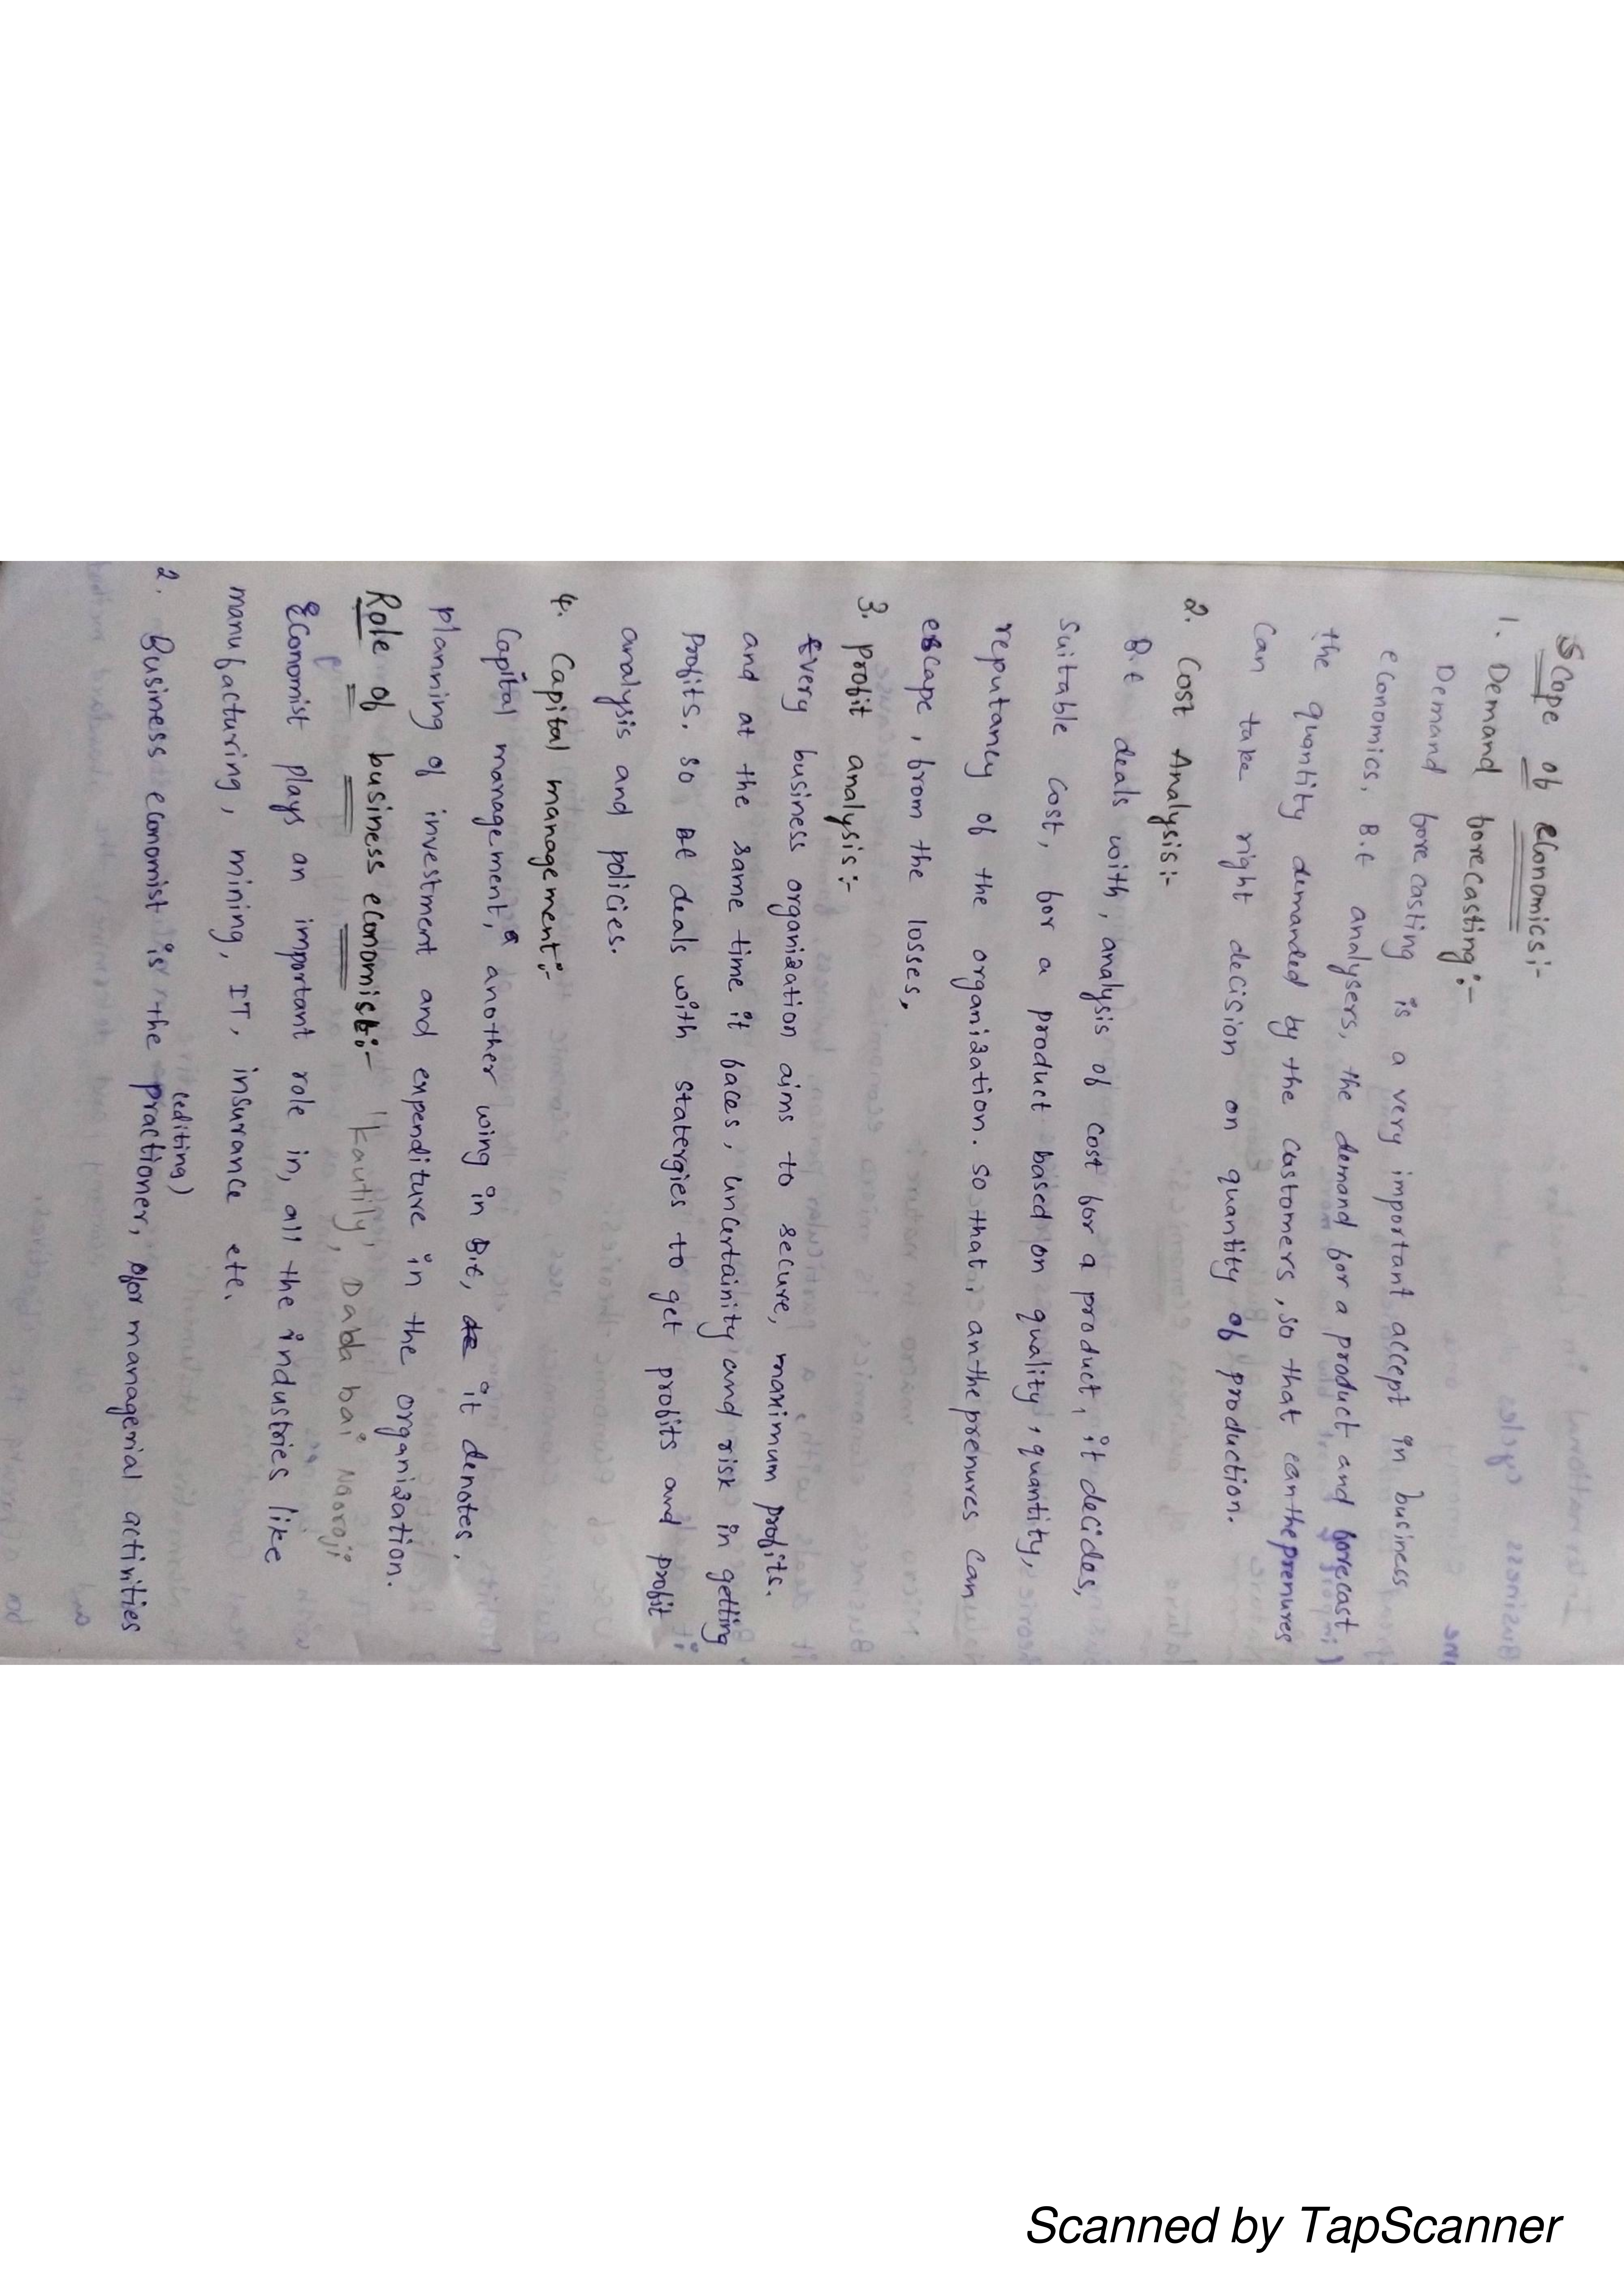 Scope of economics:-
1. Demand forecasting:-
Demand forecasting is a very important accept in business
economics. B.E analysers, the demand for a product and forecast
the quantity demanded by the customers, so that eantheprenures
can take right decision on quantity of production.
2. Cost Analysis:-
B.E deals with, analysis of cost for a product, it decides,
suitable cost, for a product based on quality, quantity,
reputancy of the organization. so that, antheprenures can
escape, from the losses.
3. profit analysis:-
Every business organization aims to secure, maximum profits.
and at the same time it faces, uncertainity and risk in getting
profits. so BE deals with statergies to get profits and profit
analysis and policies.
4. Capital management:-
Capital management, a another wing in B.E, it denotes.
planning of investment and expenditure in the organization.
Role of business economist:- "kautily", Dada bai Naoroji
Economist plays an important role in, all the industries like
manufacturing, mining, IT, insurance etc.
(editing)
2. Business economist is the practioner, for managerial activities
Scanned by TapScanner